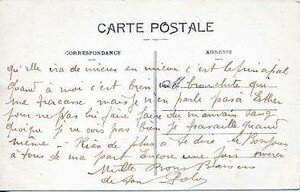 CARTE POSTALE
CORRESPONDANCE
ADRESSE
qu'elle ira de mieux en mieux c'est le principal
quand à moi c'est bien cette bronchite qui
me tracasse mais je n'en parle pas à
pour ne pas lui faire du mauvais sang
quoique je ne vois pas bien je travaille quand
même - Rien de plus à te dire - Bonjour
à tous de ma part encore une fois merci
Mille Bons Baisers
de ton